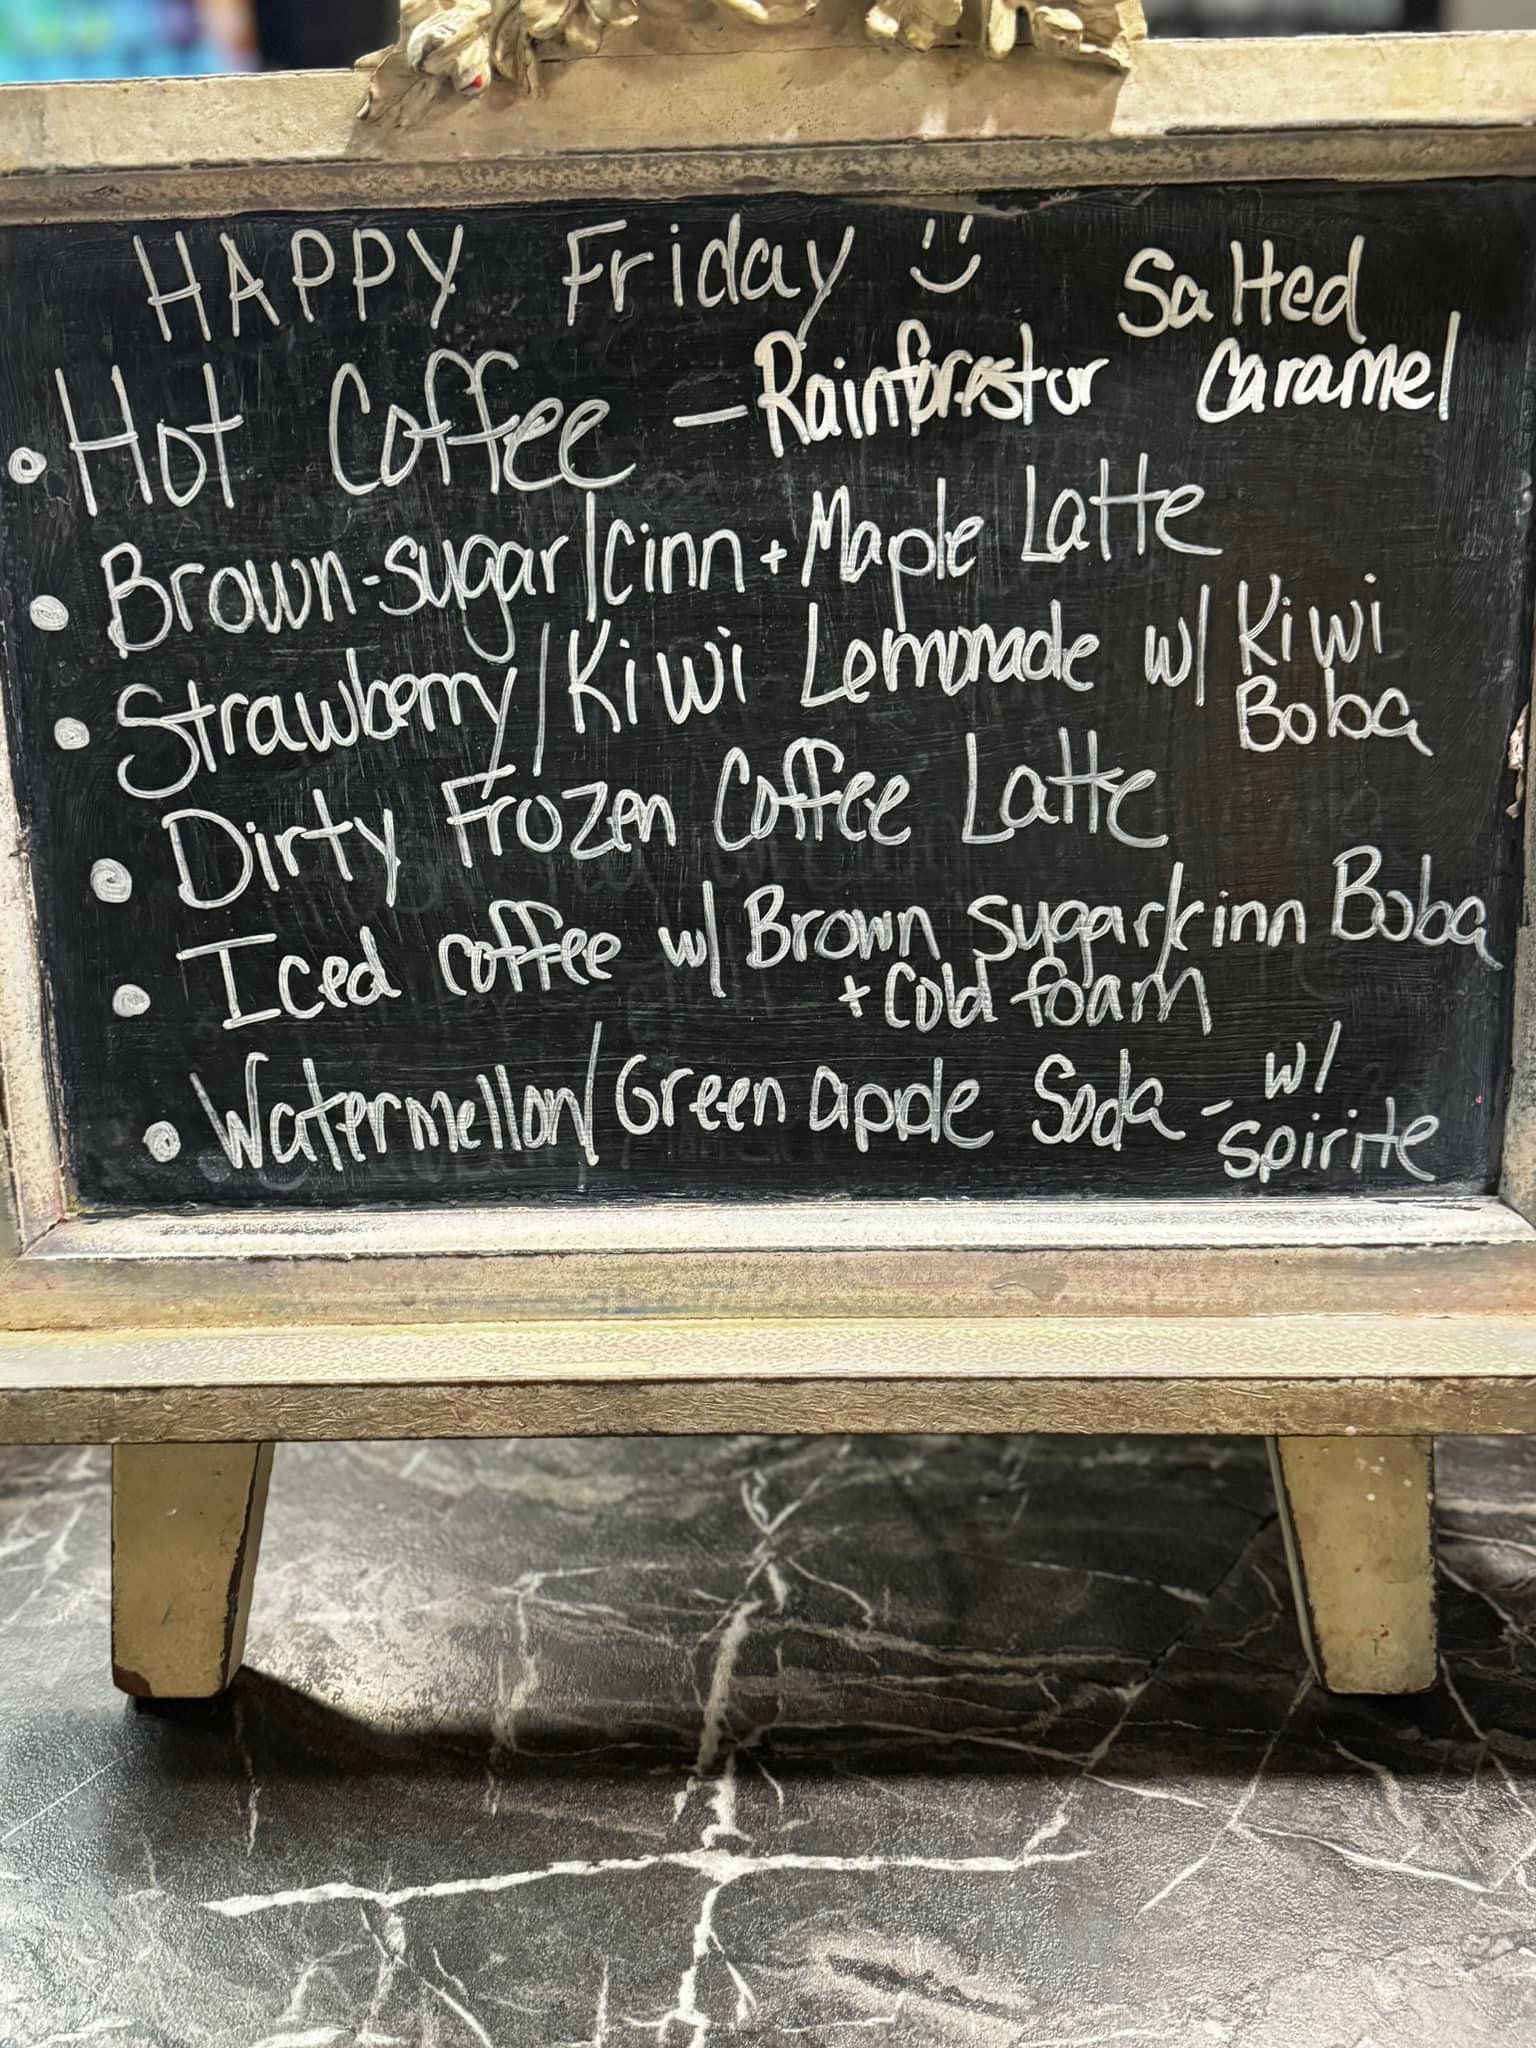 HAPPY Friday
• Hot Coffee - Rainforestor Salted Caramel
• Brown-sugar/cinn + Maple Latte
• Strawberry/Kiwi Lemonade w/ Kiwi Boba
• Dirty Frozen Coffee Latte
• Iced coffee w/ Brown sugar/cinn Boba
+ Cold foam
• Watermellon/Green apple Soda - w/ spirite